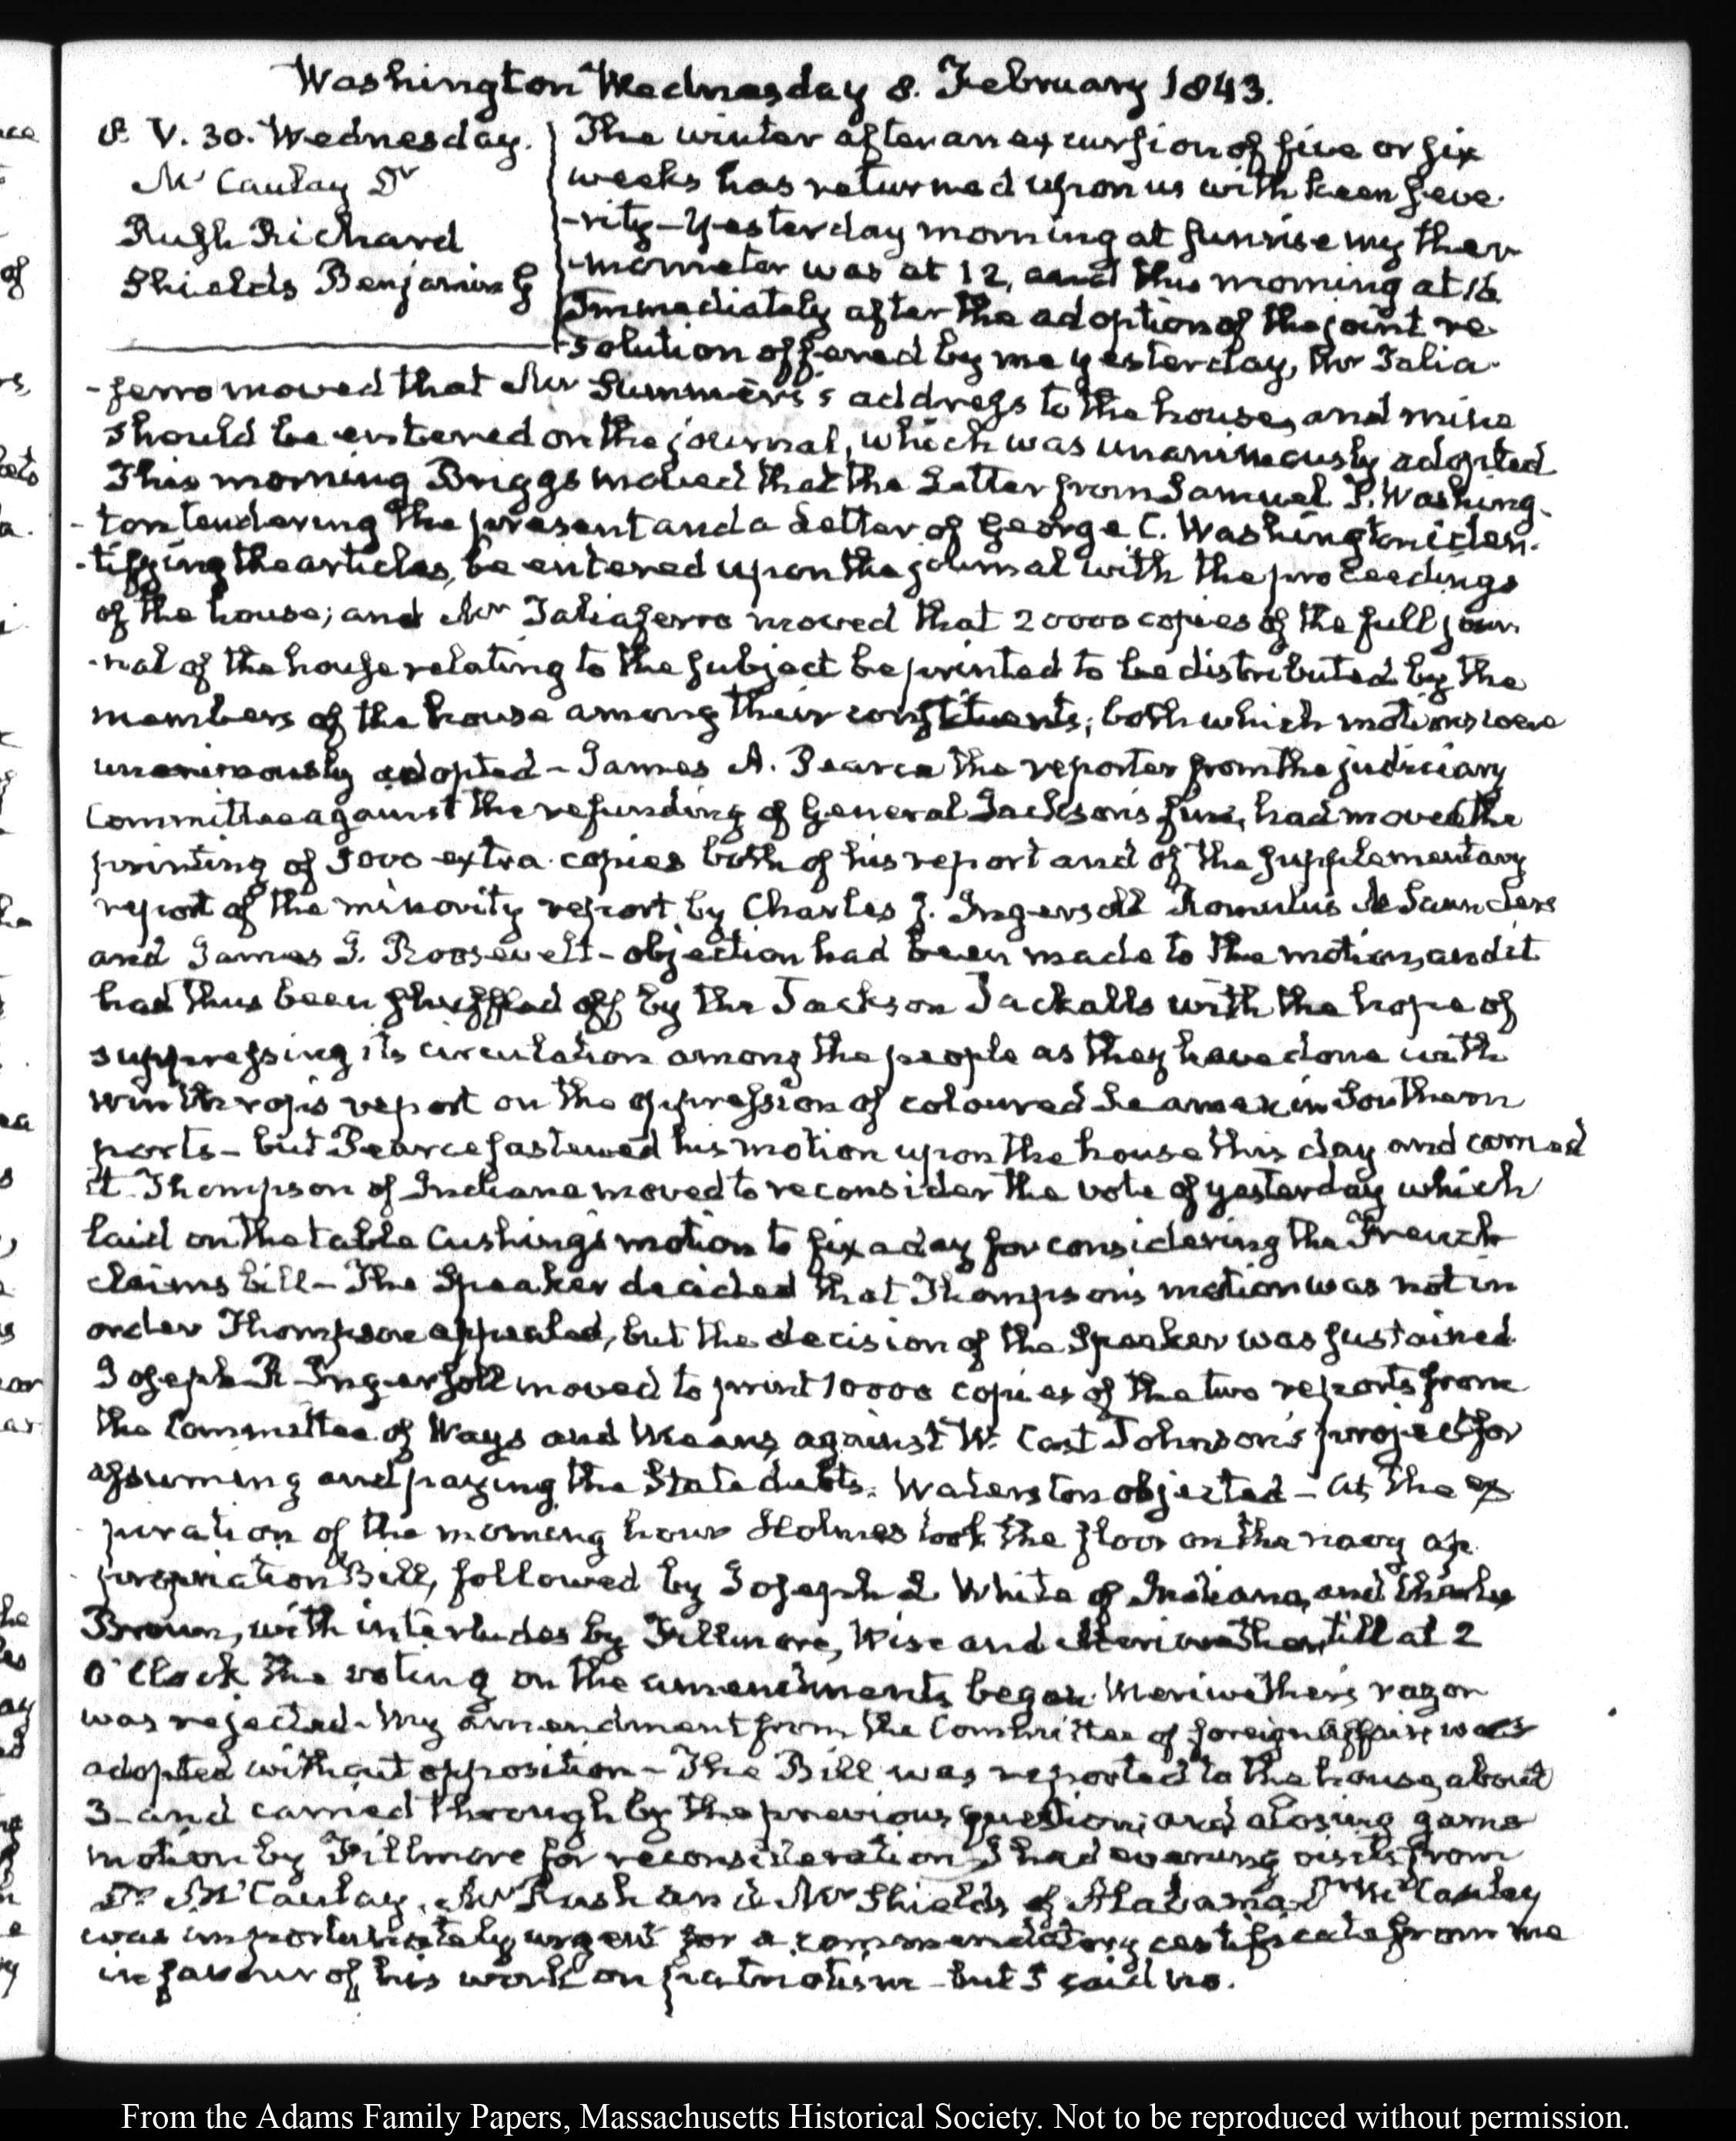 Washington Wednesday 8. February 1843.
8. V. 30. Wednesday.
McCaulay Dr
Rush Richard
Shields Benjamin G
The winter after an excursion of five or six
weeks has returned upon us with keen seve-
-rity – Yesterday morning at sunrise my ther-
-mometer was at 12, and this morning at 16
Immediately after the adoption of the joint re-
-solution offered by me yesterday, Mr Talia-
-ferro moved that Mr Summers's address to the house, and mine
should be entered on the journal, which was unanimously adopted
This morning Briggs moved that the Letter from Samuel T. Washing-
-ton tendering the present and a Letter of George C. Washington iden-
-tifying the articles, be entered upon the journal with the proceedings
of the house; and Mr Taliaferro moved that 20000 copies of the full jour-
-nal of the house relating to the subject be printed to be distributed by the
members of the house among their constituents; both which motions were
unanimously adopted – James A. Pearce the reporter from the judiciary
Committee against the refunding of General Jackson's fine, had moved the
printing of 5000 extra copies both of his report and of the supplementary
report of the minority report by Charles J. Ingersoll Romulus M Saunders
and James I. Roosevelt – objection had been made to the motion, and it
had thus been shuffled off by the Jackson Jackalls with the hope of
suppressing its circulation among the people as they have done with
Winthrop's report on the oppression of coloured Seamen in Southern
ports – but Pearce fastened his motion upon the house this day and carried
it. Thompson of Indiana moved to reconsider the vote of yesterday which
laid on the table Cushing's motion to fix a day for considering the French
claims bill – The Speaker decided that Thompson's motion was not in
order Thompson appealed, but the decision of the Speaker was sustained
Joseph R Ingersoll moved to print 10000 copies of the two reports from
the Committee of Ways and Means, against W. Cost Johnson's project for
assuming and paying the State debts. Waterston objected – At the ex-
-piration of the morning hour Holmes took the floor on the navy ap-
-propriation Bill, followed by Joseph L White of Indiana, and Charles
Brown, with interludes by Fillmore, Wise and Meriwether, till at 2
O'Clock the voting on the amendments began. Meriwether's razor
was rejected. My amendment from the Committee of foreign Affairs was
adopted without opposition – The Bill was reported to the house, about
3 – and carried through by the previous question; and a losing game
motion by Fillmore for reconsideration. I had evening visits from
Dr McCaulay, Mr Rush and Mr Shields of Alabama. Dr McCaulay
was importunately urgent for a commendatory certificate from me
in favour of his work on patriotism – but I said no.
From the Adams Family Papers, Massachusetts Historical Society. Not to be reproduced without permission.